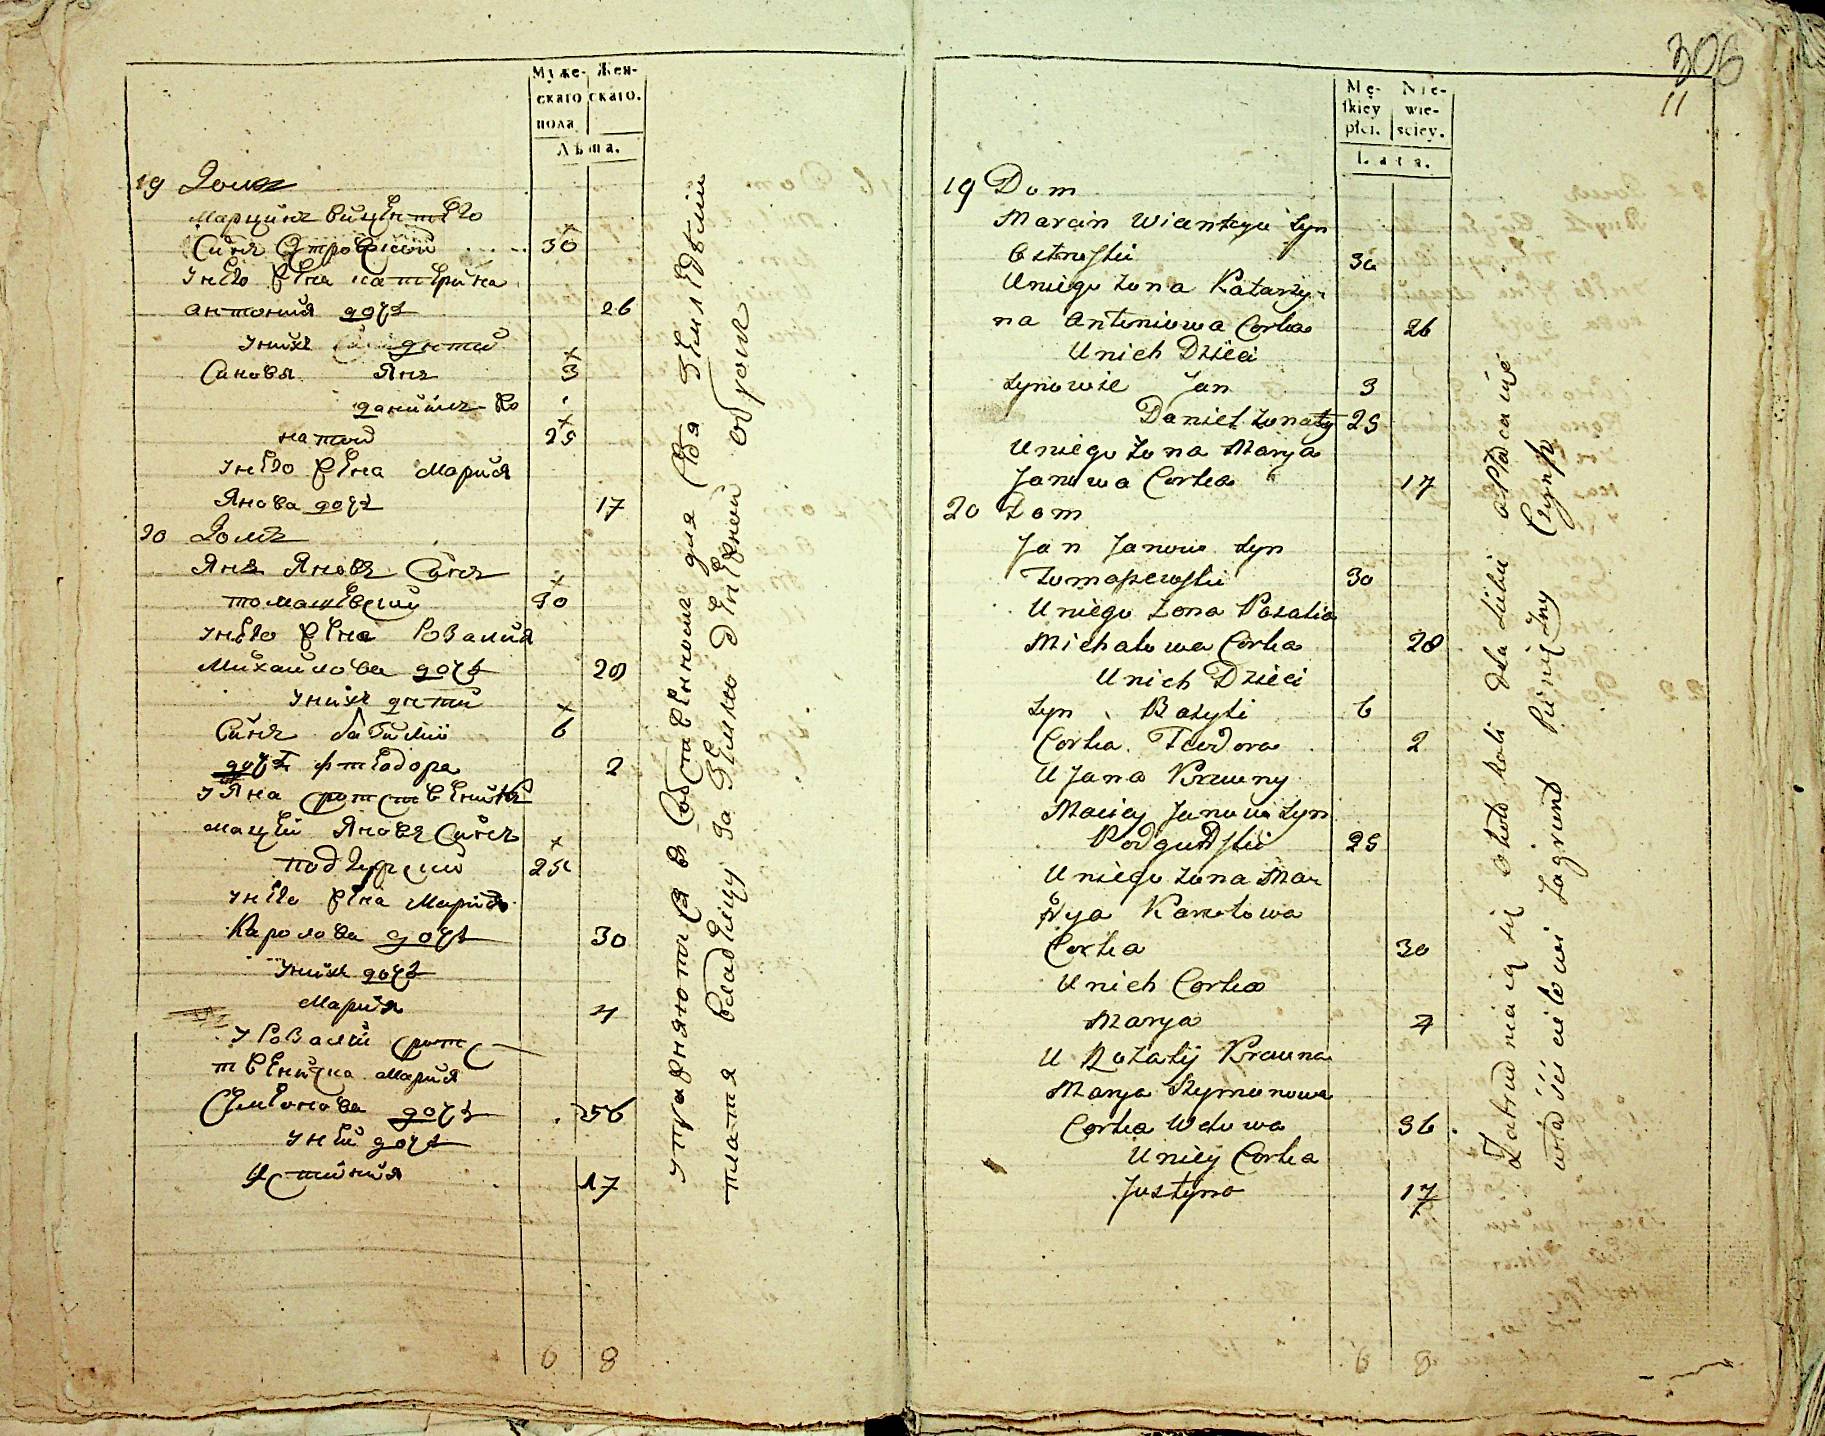 Муже-
скаго
пола
Жен-
скаго.
Лѣта.
19 Домъ
Марцинъ Виценътего
Сынъ Островский 30
Унего жена Катерина
Антония дочь 26
Унихъ дѣти
Синовья Янъ 3
Данииль Жо
натый 25
Унего жена Мария
Янова дочь 17
20 Домъ
Янъ Яновъ Сынъ
Томашевский 30
Унего жена Розалия
Михайлова дочь 28
Унихъ дѣти
Сынъ Базилий 6
дочь Фтеодора 2
У Яна
Мацей Яновъ Сынъ
Подгурский 25
Унего жена Мария
Каролова дочь 30
Унихъ дочь
Мария 4
У Розалии сротс
твеница Мария
Семионова дочь 36
Уней дочь
Устиния 17
6 8
упражняютца в Собственномъ для Себя Земледелии
платя владелцу за Землю денежной оброкъ
306
11
Mę-
ſkiey
płci.
Nie-
wie-
sciey.
Lata.
19 Dom
Marcin Wiantego Syn
Ostroſki 30
Uniego Zona Katarzy-
na Antoniowa Corka 26
Unich Dzieci
Synowie Jan 3
Daniel Zonaty 25
Uniego Zona Marya
Janowa Corka 17
20 Dom
Jan Janow Syn
Tomaszewſki 30
Uniego Zona Rozalia
Michałowa Corka 28
Unich Dzieci
Syn Bazyli 6
Corka Teodora 2
U Jana Krewny
Maciey Janow Syn
Podgurſki 25
Uniego Zona Mar
Rya Karolowa
Corka 30
Unich Corka
Marya 4
U Rozalij Krewna
Marya Szymonowa
Corka Wdowa 36
Uniey Corka
Justyna 17
6 8
Zatrudniaią się około Roli dla Siebie opłacaiąc
właścicielowi Zagrunt Pieniężny Czynsz